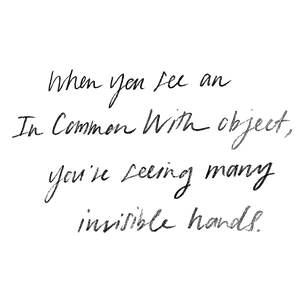 When you see an
In Common With object,
you're seeing many
invisible hands.